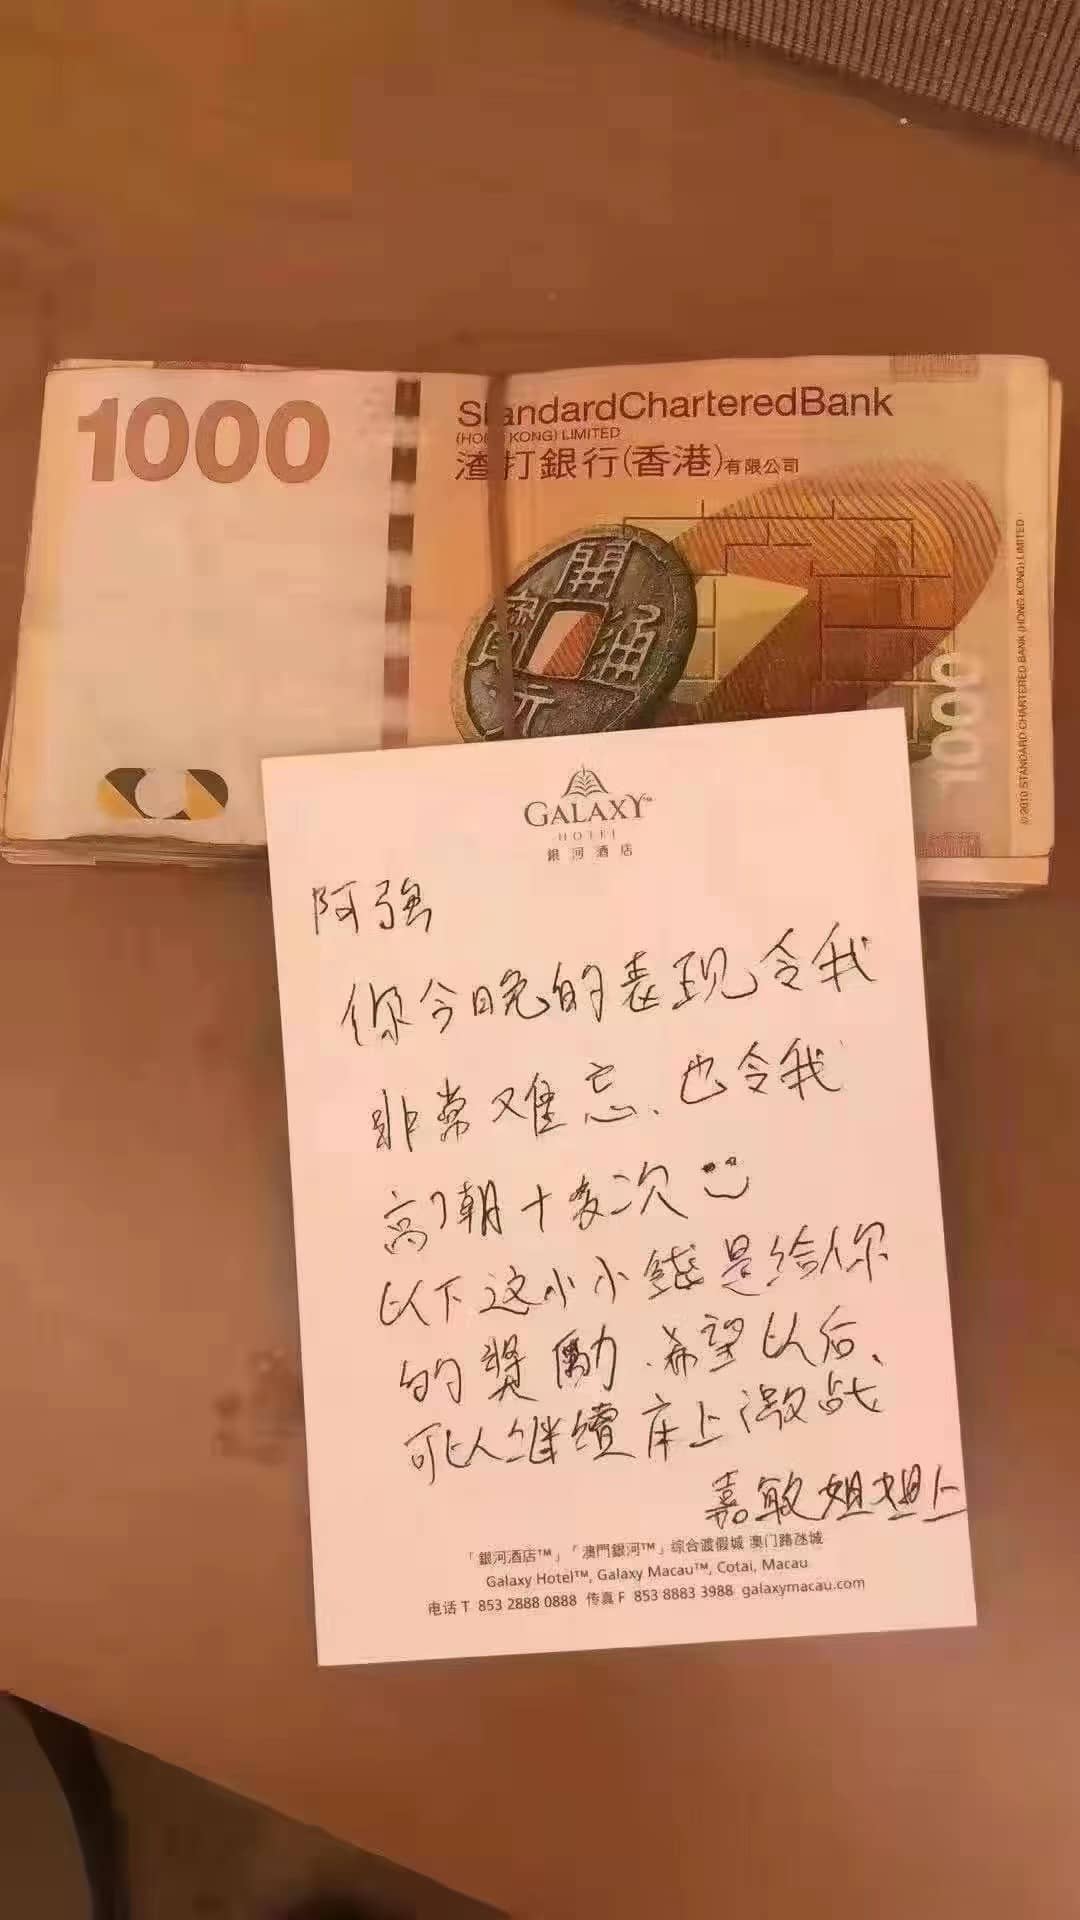 1000
StandardCharteredBank
(HONG KONG) LIMITED
渣打銀行(香港)有限公司
開
通
元
寳
1000
©2010 STANDARD CHARTERED BANK (HONG KONG) LIMITED
GALAXY™
HOTEL
銀河酒店
阿强
你今晚的表现令我
非常难忘、也令我
高潮十多次
以下这小小錢是给你
的奬励.希望以后、
可以继續床上激战
嘉敏姐姐上
「銀河酒店™」「澳門銀河™」综合渡假城 澳门路氹城
Galaxy Hotel™, Galaxy Macau™, Cotai, Macau
电话 T 853 2888 0888 传真 F 853 8883 3988 galaxymacau.com